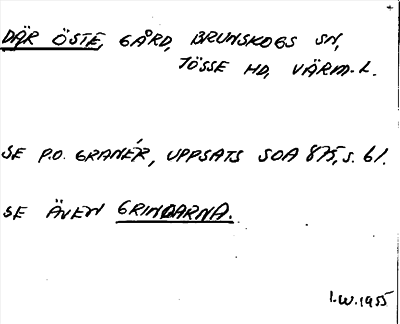 DÄR ÖSTE, GÅRD, BRUNSKOGS SN,
JÖSSE HD, VÄRM. L.
SE P.O. GRANÉR, UPPSATS SOA 875, S. 61.
SE ÄVEN GRINDARNA.
I.W. 1955